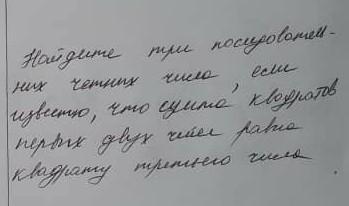 Найдите три последователь-
них четних числа, если
известно, что сумма квадратов
первых двух чисел равна
квадрату третьего числа.